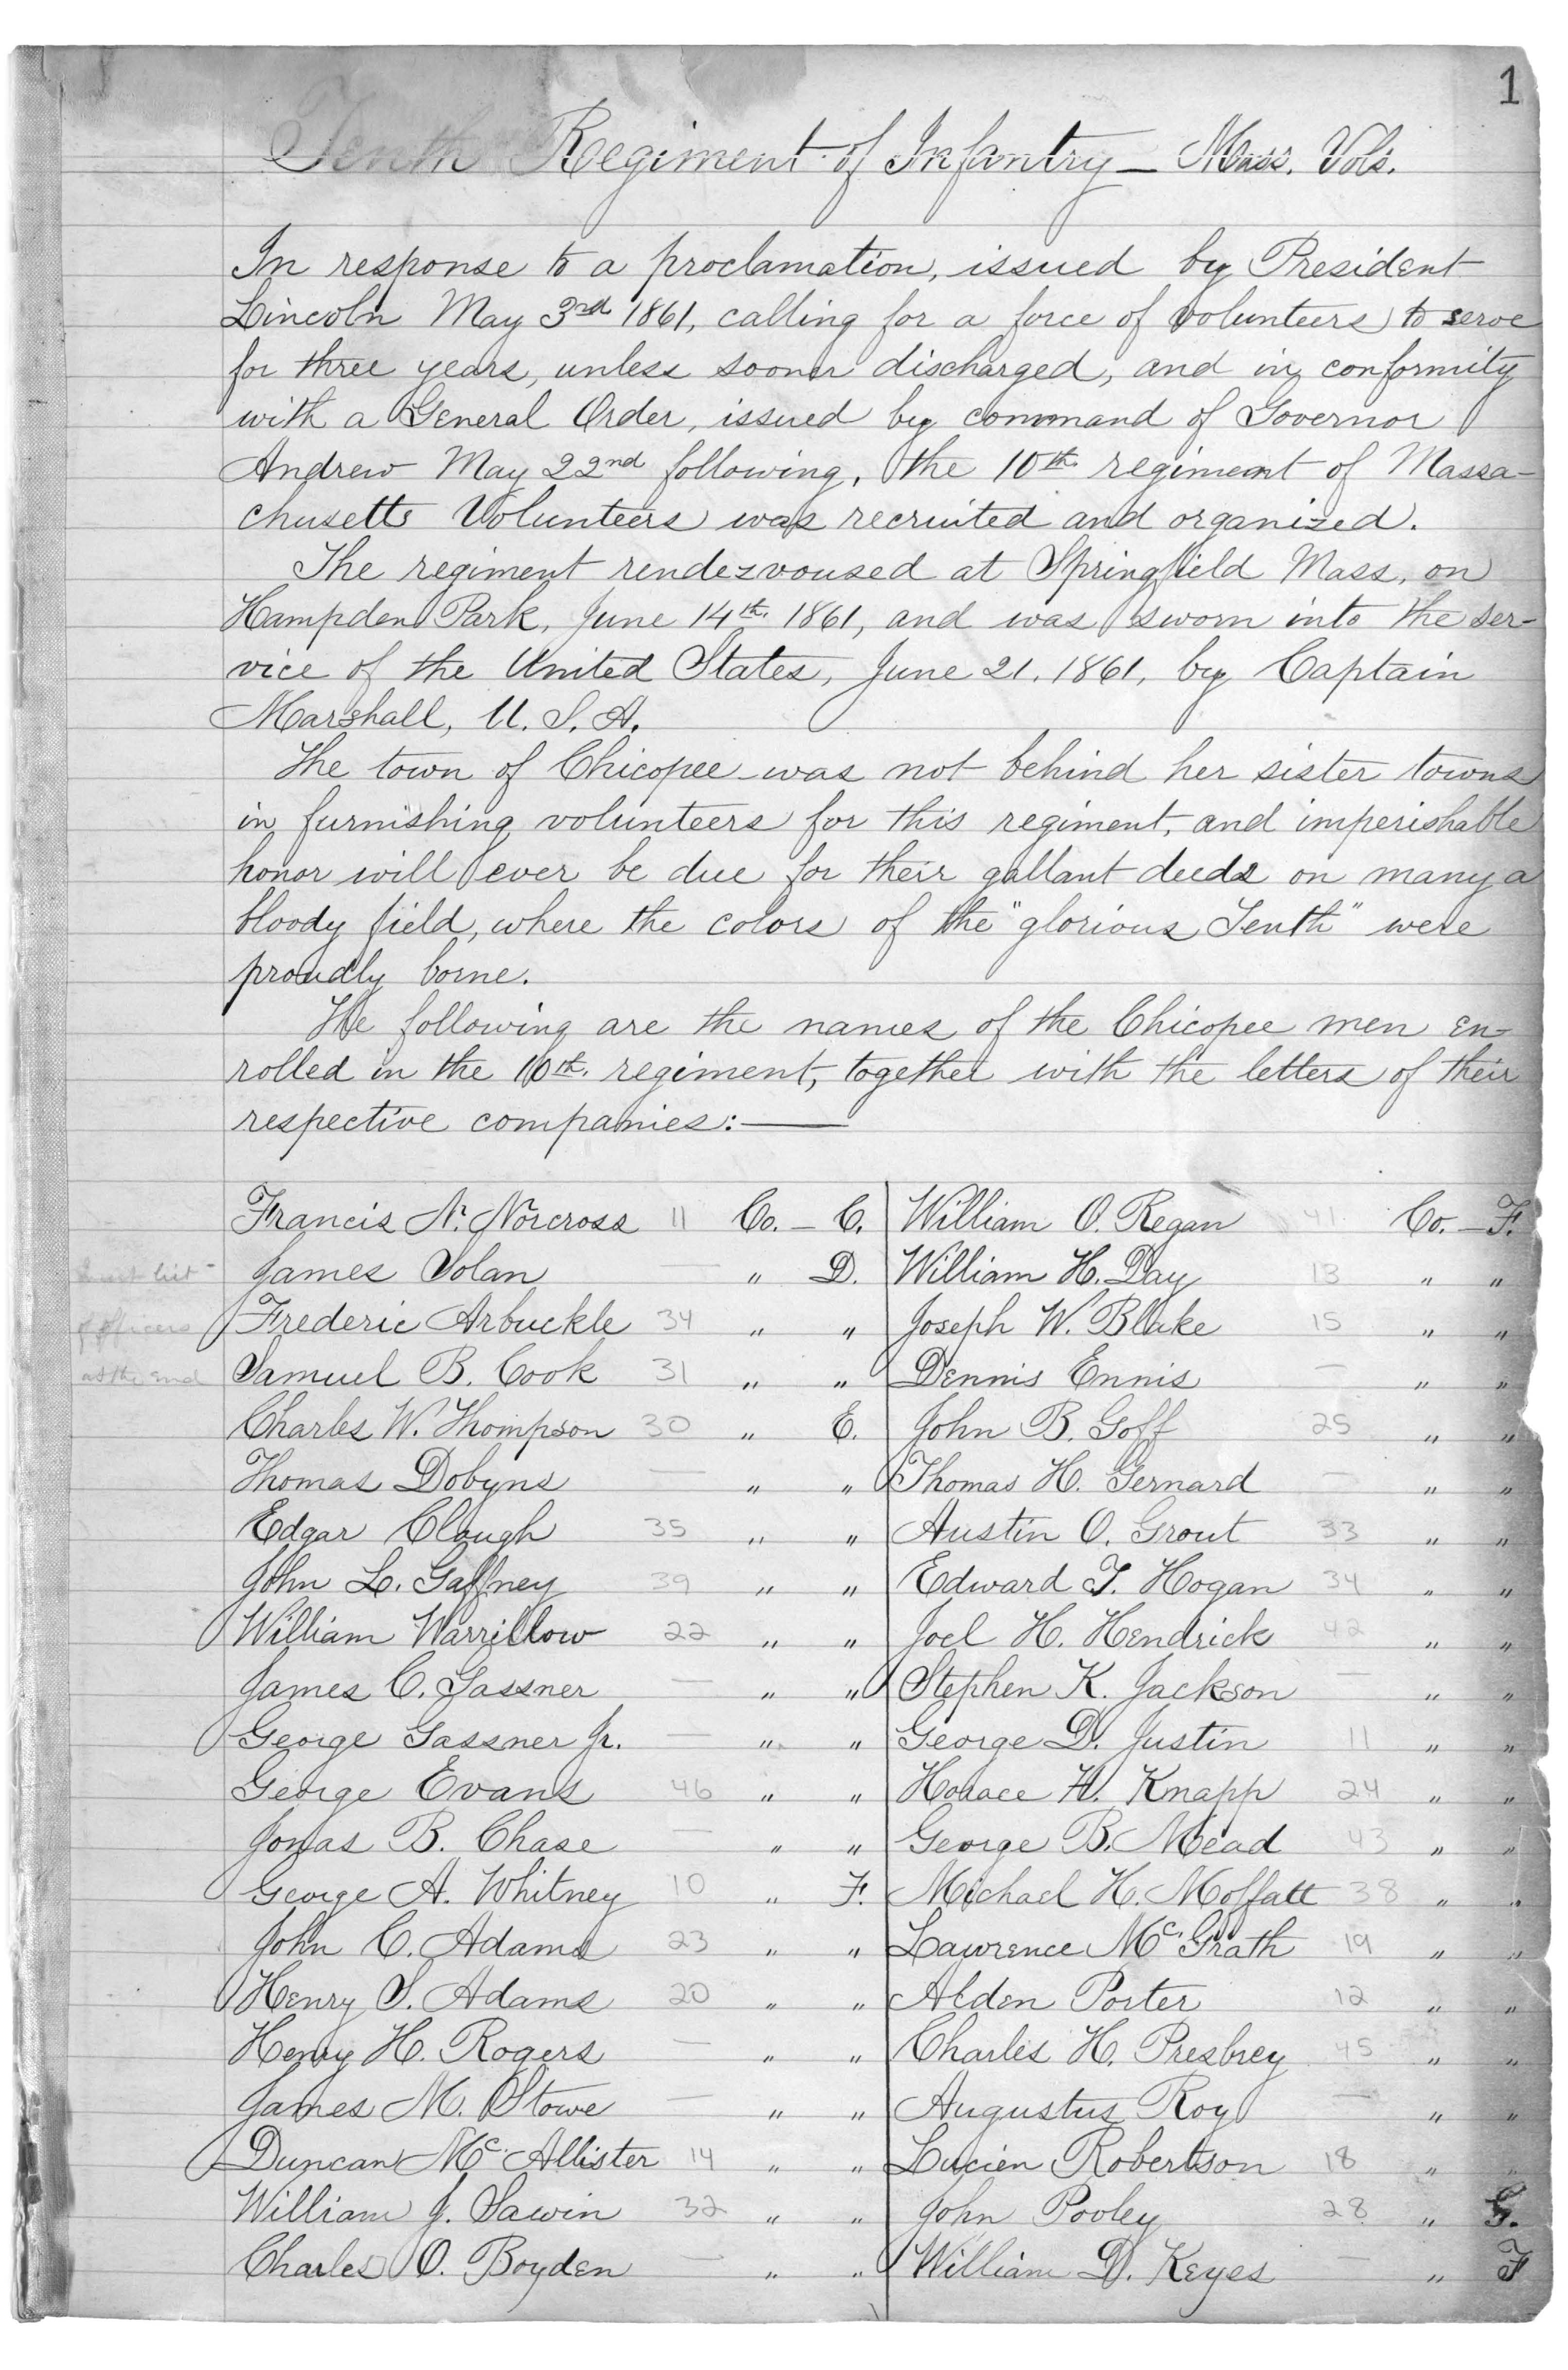 1
Tenth Regiment of Infantry — Mass. Vols.
In response to a proclamation, issued by President
Lincoln May 3rd 1861, calling for a force of volunteers to serve
for three years, unless sooner discharged, and in conformity
with a General Order, issued by command of Governor
Andrew May 22nd following, the 10th regiment of Massa-
chusetts Volunteers was recruited and organized.
The regiment rendezvoused at Springfield Mass, on
Hampden Park, June 14th 1861, and was sworn into the ser-
vice of the United States, June 21. 1861, by Captain
Marshall, U. S. A.
The town of Chicopee was not behind her sister towns
in furnishing volunteers for this regiment, and imperishable
honor will ever be due for their gallant deeds on many a
bloody field, where the colors of the "glorious Tenth" were
proudly borne.
The following are the names of the Chicopee men en-
rolled in the 10th. regiment, together with the letters of their
respective companies:—
Francis N. Norcross 11 Co. — C. William O. Regan 41 Co. — F.
list James Dolan — " D. William H. Day 13 " "
of officers Frederic Arbuckle 34 " " Joseph W. Blake 15 " "
at the end Samuel B. Cook 31 " " Dennis Ennis — " "
Charles W. Thompson 30 " E. John B. Goff 25 " "
Thomas Dobyns — " " Thomas H. Gernard — " "
Edgar Clough 35 " " Austin O. Grout 33 " "
John L. Gaffney 39 " " Edward T. Hogan 34 " "
William Warrillow 22 " " Joel H. Hendrick 42 " "
James C. Gassner — " " Stephen K. Jackson — " "
George Gassner Jr. — " " George D. Justin 11 " "
George Evans 46 " " Horace H. Knapp 24 " "
Jonas B. Chase — " " George B. Mead 43 " "
George A. Whitney 10 " F. Michael H. Moffatt 38 " "
John C. Adams 23 " " Lawrence McGrath 19 " "
Henry S. Adams 20 " " Alden Porter 12 " "
Henry H. Rogers — " " Charles H. Presbrey 45 " "
James M. Stowe — " " Augustus Roy — " "
Duncan McAllister 14 " " Lucien Robertson 18 " "
William J. Sawin 32 " " John Pooley 28 " G.
Charles O. Boyden — " " William D. Keyes — " F